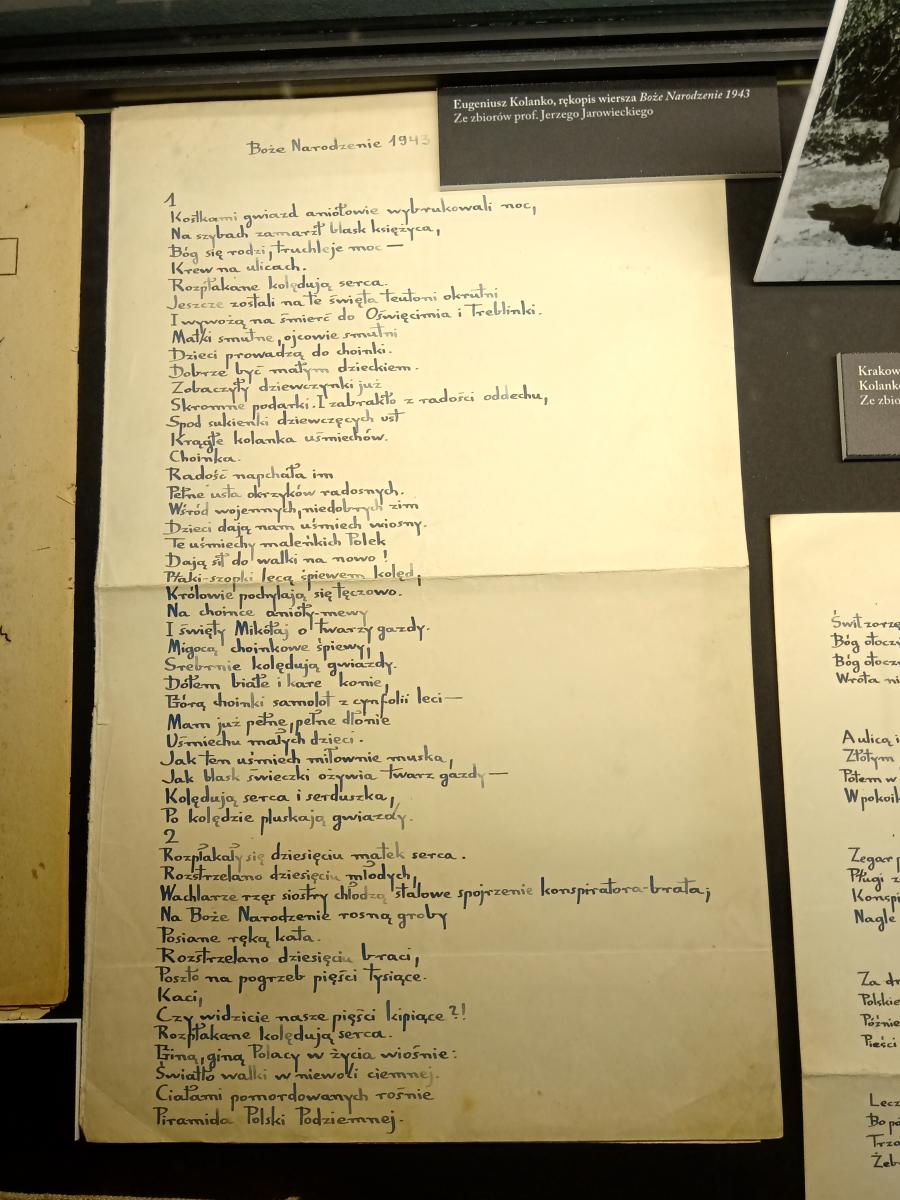 Eugeniusz Kolanko, rękopis wiersza Boże Narodzenie 1943
Ze zbiorów prof. Jerzego Jarowieckiego
Boże Narodzenie 1943
1
Kostkami gwiazd aniołowie wybrukowali noc,
Na szybach zamarzł blask księżyca,
Bóg się rodzi, truchleje moc —
Krew na ulicach.
Rozpłakane kolędują serca.
Jeszcze zostali na te święta teutoni okrutni
I wywożą na śmierć do Oświęcimia i Treblinki.
Matki smutne, ojcowie smutni
Dzieci prowadzą do choinki.
Dobrze być małym dzieckiem.
Zobaczyły dziewczynki już
Skromne podarki. I zabrakło z radości oddechu,
Spod sukienki dziewczęcych ust
Krągłe kolanka uśmiechów.
Choinka.
Radość napchała im
Pełne usta okrzyków radosnych.
Wśród wojennych, niedobrych zim
Dzieci dają nam uśmiech wiosny.
Te uśmiechy maleńkich Polek
Dają sił do walki na nowo!
Ptaki-szopki lecą śpiewem kolęd;
Królowie pochylają się tęczowo.
Na choince anioły-mewy
I święty Mikołaj o twarzy gazdy.
Migocą choinkowe śpiewy,
Srebrnie kolędują gwiazdy.
Dołem białe i kare konie,
Górą choinki samolot z cynfolii leci —
Mam już pełne, pełne dłonie
Uśmiechu małych dzieci.
Jak ten uśmiech miłownie muska,
Jak blask świeczki ożywia twarz gazdy —
Kolędują serca i serduszka,
Po kolędzie pluskają gwiazdy.
2
Rozpłakały się dziesięciu matek serca.
Rozstrzelano dziesięciu młodych,
Wachlarze rzęs siostry chłodzą stalowe spojrzenie konspiratora-brata;
Na Boże Narodzenie rosną groby
Posiane ręką kata.
Rozstrzelano dziesięciu braci,
Poszło na pogrzeb pięści tysiące.
Kaci,
Czy widzicie nasze pięści kipiące?!
Rozpłakane kolędują serca.
Giną, giną Polacy w życia wiośnie:
Światło walki w niewoli ciemnej.
Ciałami pomordowanych rośnie
Piramida Polski Podziemnej.
Krakow
Kolanko
Ze zbio
Świt zorzę
Bóg otoczy
Bóg otoczy
Wrota ni
A ulicą i
Złotym
Potem w
W pokoik
Zegar p
Pługi z
Konspi
Nagle
Za dr
Polskie
Późnie
Pieści
Lecz
Bo pó
Trza
Żeb